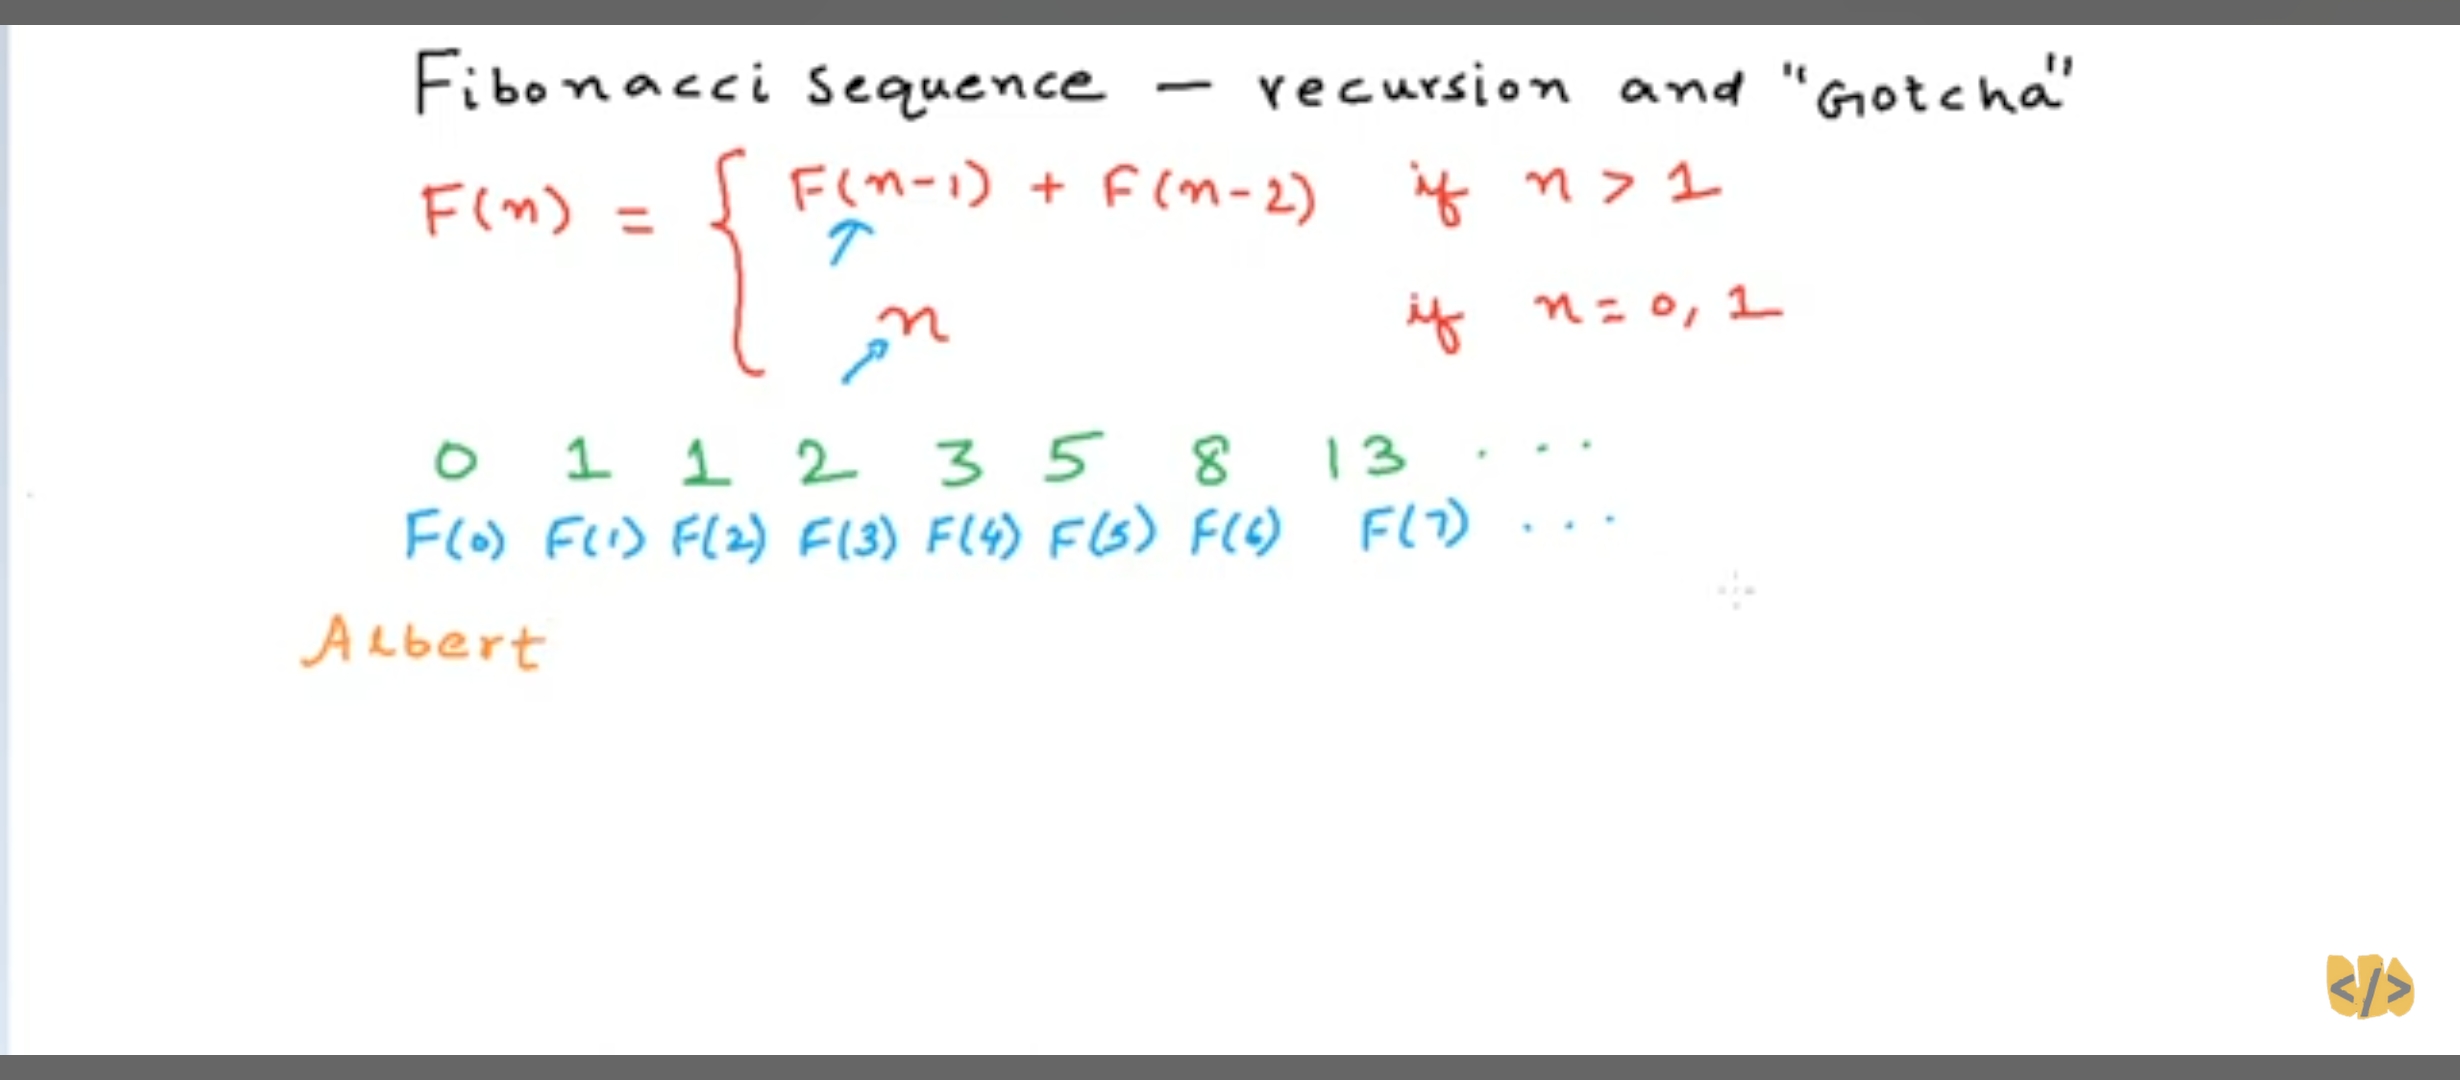 Fibonacci sequence — recursion and "Gotcha"
F(n) = { F(n-1) + F(n-2) if n > 1
n if n = 0, 1
0 1 1 2 3 5 8 13 ....
F(0) F(1) F(2) F(3) F(4) F(5) F(6) F(7) ...
Albert
</>